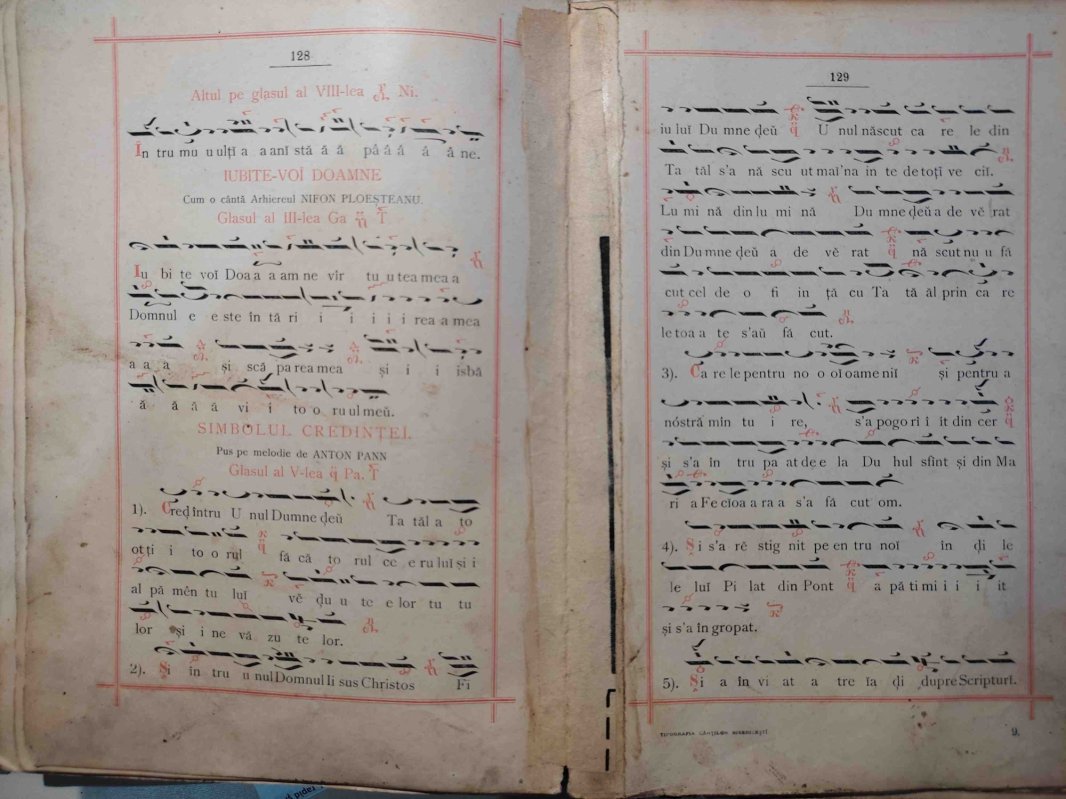 128
Altul pe glasul al VIII-lea Ni.
În tru mu u ulți a a anĭ stă ă ă pâ â â â â ne.
IUBITE-VOĬ DOAMNE
Cum o cântă Arhiereul NIFON PLOEȘTEANU.
Glasul al III-lea Ga
Iu bi te voĭ Doa a a am ne vîr tu u tea mea a
Domnul e e ste în tă ri i i i i i rea a mea
a a a și scă pa rea mea și i i isbă
ă ă ă ă vi i to o ru ul meŭ.
SIMBOLUL CREDINȚEI.
Pus pe melodie de ANTON PANN
Glasul al V-lea Pa.
1). Cred întru U nul Dumne ḑeŭ Ta tăl a to
ot ți i to o rul fă că to rul ce e ru luĭ și i
al pă mên tu luĭ vĕ ḑu u te e lor tu tu
lor și i ne vă zu te lor.
2). Și în tru u nul Domnul Ii sus Christos Fi
129
iu luĭ Du mne ḑeŭ U nul născut ca re le din
Ta tăl s'a nă scu ut maĭ'na in te de toțĭ ve ciĭ.
Lu mi nă din lu mi nă Du mne ḑeŭ a de vĕ rat
din Du mne ḑeŭ a de vĕ rat nă scut nu u fă
cut cel de o fi in ță cu Ta tă ăl prin ca re
le toa a te s'aŭ fă cut.
3). Ca re le pentru no o oĭ oame niĭ și pentru a
nóstră mîn tu i re, s'a pogo ri î it din cer
și s'a în tru pa at de e la Du hul sfînt și din Ma
ri a Fe cĭoa a ra a s'a fă cut om.
4). Și s'a rĕ stig nit pe en tru noĭ în ḑi le
le luĭ Pi lat din Pont a pă ti mi i i i it
și s'a îngropat.
5). Și a în vi at a tre ĭa ḑi dupre Scripturĭ.
TIPOGRAFIA CĂRȚILOR BISERICEȘTĬ
9.